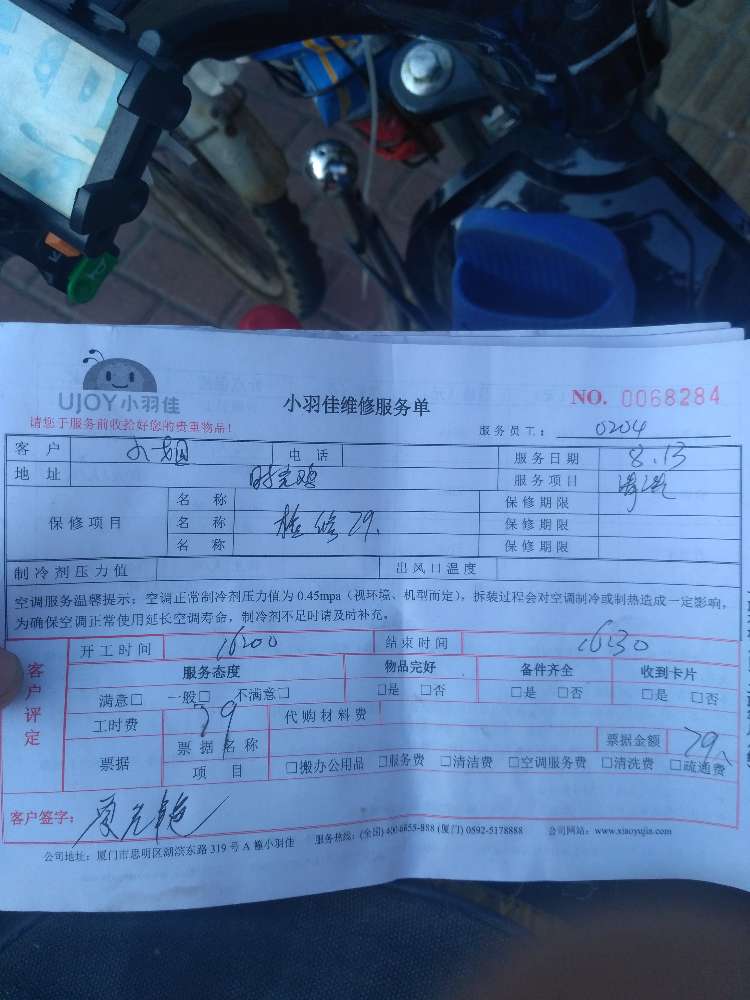 UJOY小羽佳
小羽佳维修服务单
NO. 0068284
请您于服务前收拾好您的贵重物品!
服务员工: 0204
客户 电话 服务日期 8.13
地址 服务项目
保修项目 名称 保修期限
名称 检修79. 保修期限
名称 保修期限
制冷剂压力值 出风口温度
空调服务温馨提示:空调正常制冷剂压力值为 0.45mpa(视环境、机型而定),拆装过程会对空调制冷或制热造成一定影响,
为确保空调正常使用延长空调寿命,制冷剂不足时请及时补充。
客户评定
开工时间 16:00 结束时间 16:30
服务态度 物品完好 备件齐全 收到卡片
满意□ 一般□ 不满意□ □是 □否 □是 □否 □是 □否
工时费 79 代购材料费
票据 票据名称 票据金额 79
项目 □搬办公用品 □服务费 □清洁费 □空调服务费 □清洗费 □疏通费
客户签字:
公司地址:厦门市思明区湖滨东路 319 号 A 幢小羽佳 服务热线:(全国) 400-6655-888 (厦门) 0592-5178888 公司网站:www.xiaoyujia.com